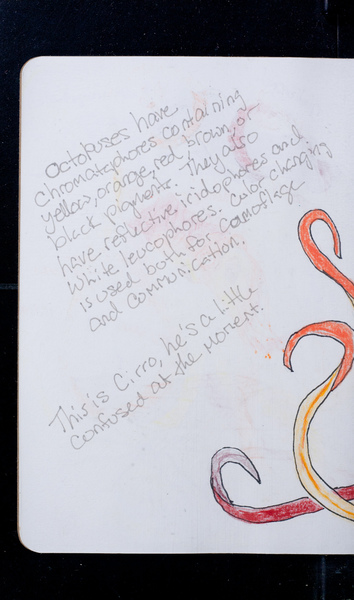 Octopuses have
chromatophores containing
yellow, orange, red, brown, or
black pigments. They also
have reflective iridophores and
white leucophores. Color changing
is used both for camoflage
and communication.
This is Cirro, he's a little
confused at the moment.